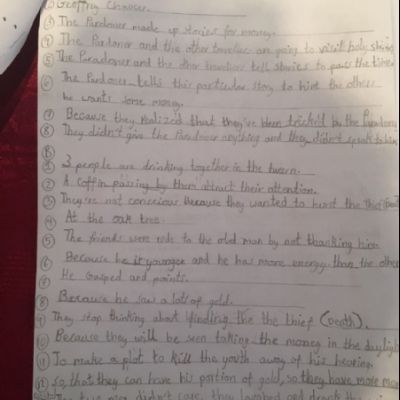 Geoffry Chaucer.
③ The Pardoner made up stories for money.
④ The Pardoner and the other traveller are going to visit holy shrine
⑤ The Paradoner and the other travellers tell stories to pass the time
⑥ The Pardoner tells this particular story to hint the others
he wants some money.
⑦ Because they realized that they've been tricked by the Pardoner
⑧ They didn't give the Pardoner anything and they didn't speak to him
Ⓑ
① 3 people are drinking together in the tavern.
② A coffin passing by them attract their attention.
③ They're not conscious because they wanted to hunt the thief
④ At the oak tree.
⑤ The friends were rude to the old man by not thanking him.
⑥ Because he is younger and he has more energy than the other
⑦ He Gasped and points.
⑧ Because he saw a lots of gold.
⑨ They stop thinking about finding the the thief (Death).
⑩ Because they will be seen taking the money in the daylight
⑪ To make a plot to kill the youth away of his hearing.
⑫ So that they can have his portion of gold, so they have more
The two men didn't care, they laughed and drank the